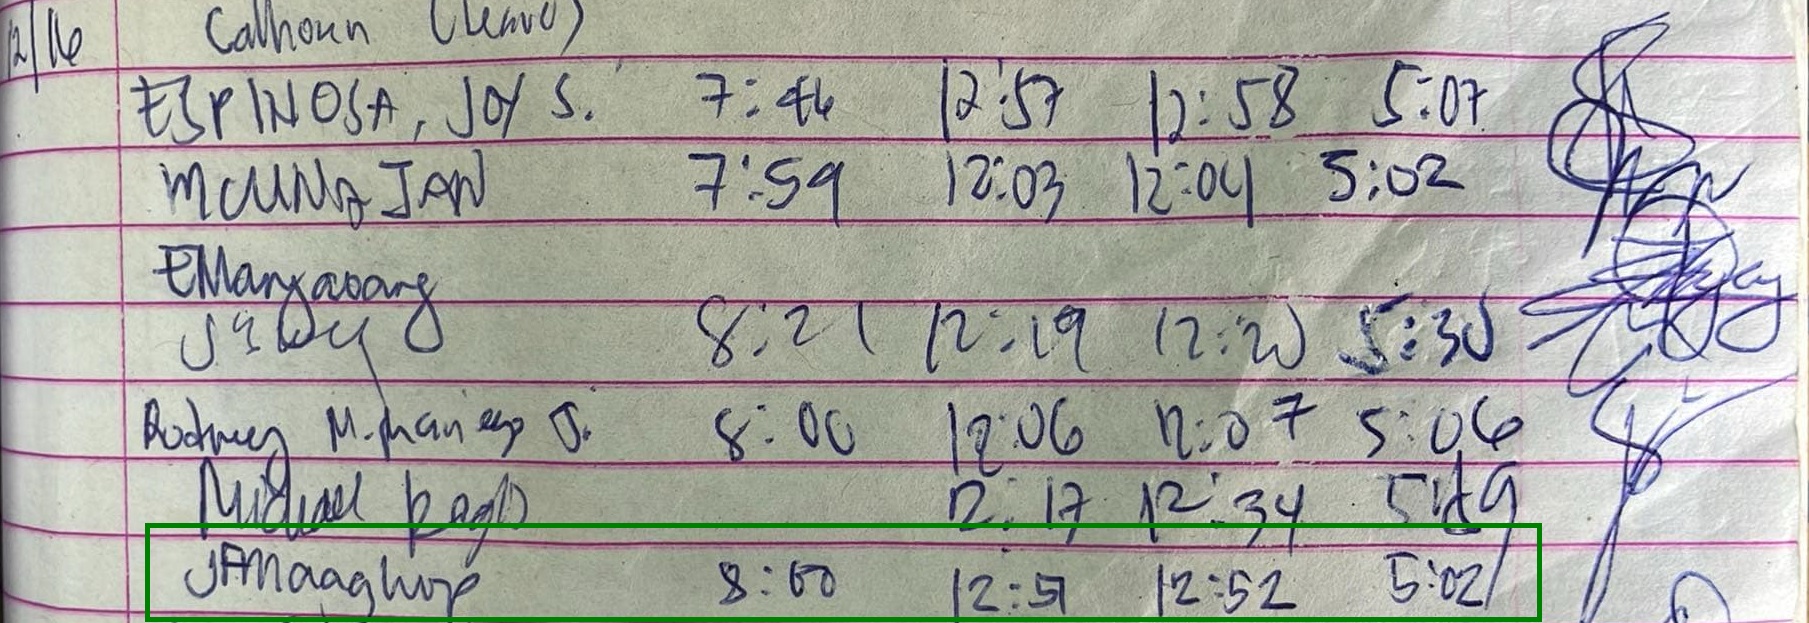 12/16 Calhoun (leave)
ESPINOSA, JOY S. 7:46 12:57 12:58 5:07
JAN 7:59 12:03 12:04 5:02
8:21 12:19 12:20 5:30
Rodney M. Jr. 8:00 12:06 12:07 5:06
Michael 12:17 12:34
8:00 12:51 12:52 5:02